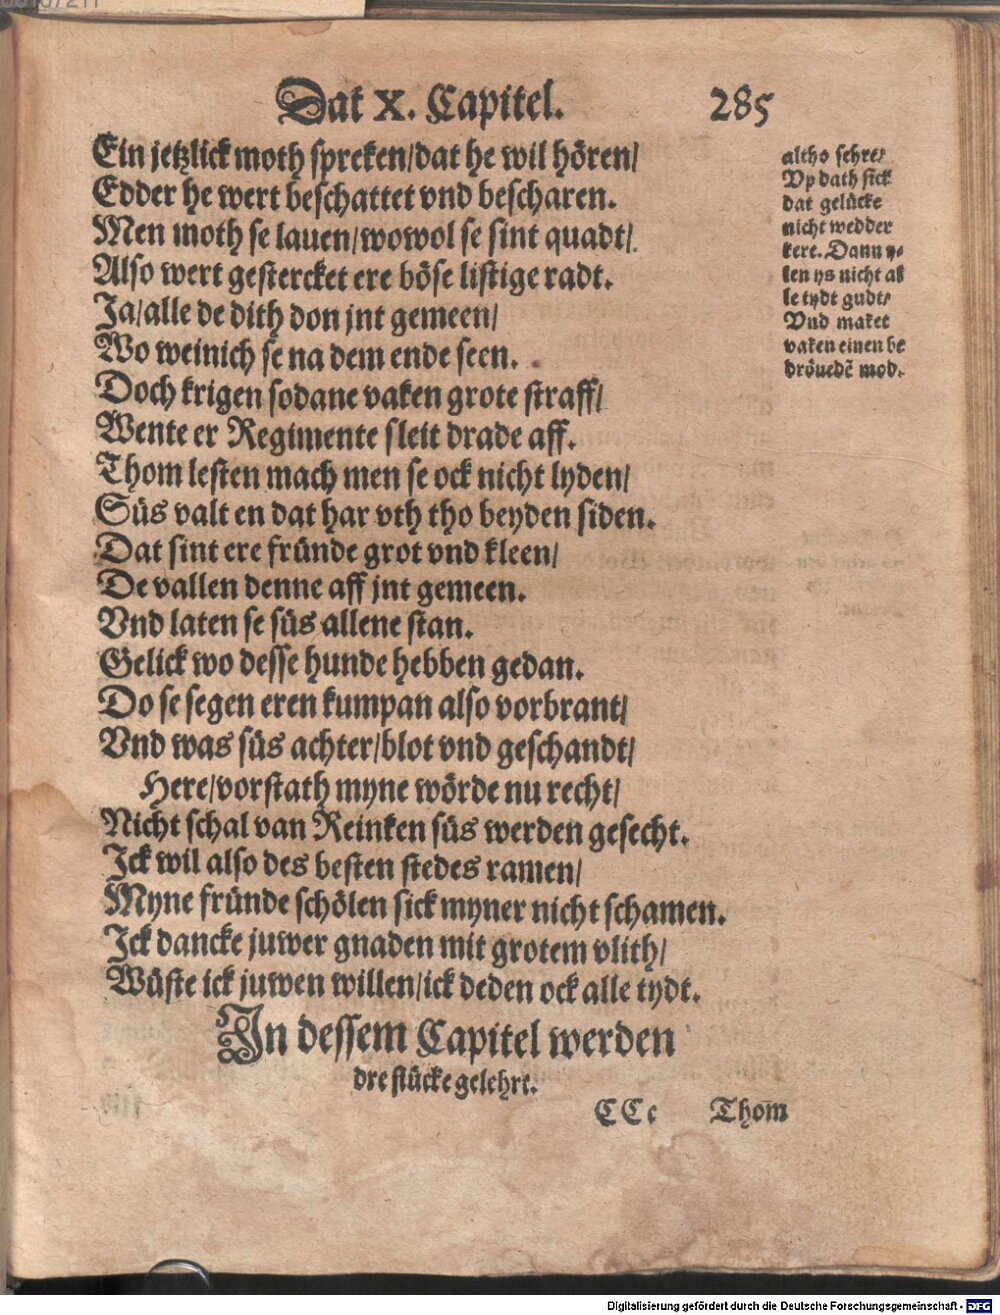 Dat X. Capitel. 285
Ein jetzlick moth spreken/dat he wil hören/
Edder he wert beschattet vnd bescharen.
Men moth se lauen/wowol se sint quadt/
Also wert gestercket ere böse listige radt.
Ja/alle de dith don jnt gemeen/
Wo weinich se na dem ende seen.
Doch krigen sodane vaken grote straff/
Wente er Regimente sleit drade aff.
Thom lesten mach men se ock nicht lyden/
Süs valt en dat har vth tho beyden siden.
Dat sint ere fründe grot vnd kleen/
De vallen denne aff jnt gemeen.
Vnd laten se süs allene stan.
Gelick wo desse hunde hebben gedan.
Do se segen eren kumpan also vorbrant/
Vnd was süs achter/blot vnd geschandt/
Here/vorstath myne wörde nu recht/
Nicht schal van Reinken süs werden gesecht.
Ick wil also des besten stedes ramen/
Myne fründe schölen sick myner nicht schamen.
Ick dancke juwer gnaden mit grotem vlith/
Wüste ick juwen willen/ick deden ock alle tydt.
In dessem Capitel werden
dre stücke gelehrt.
CCc Thom̄
altho sehre/
Vp dath sick
dat gelücke
nicht wedder
kere. Dann y-
len ys nicht al
le tydt gudt/
Vnd maket
vaken einen be
dröuedē mod.
Digitalisierung gefördert durch die Deutsche Forschungsgemeinschaft - DFG